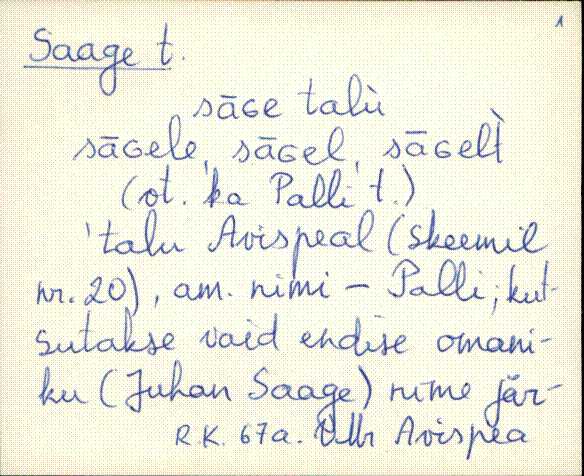 1
Saage t.
sāɢe talù
sāɢele, sāɢel, sāɢelt̀
(ot. ka Palli t.)
talu Avispeal (skeemil
nr. 20), am. nimi – Palli; kut-
sutakse vaid endise omani-
ku (Juhan Saage) nime jär-
R.K. 67a. VMr Avispea